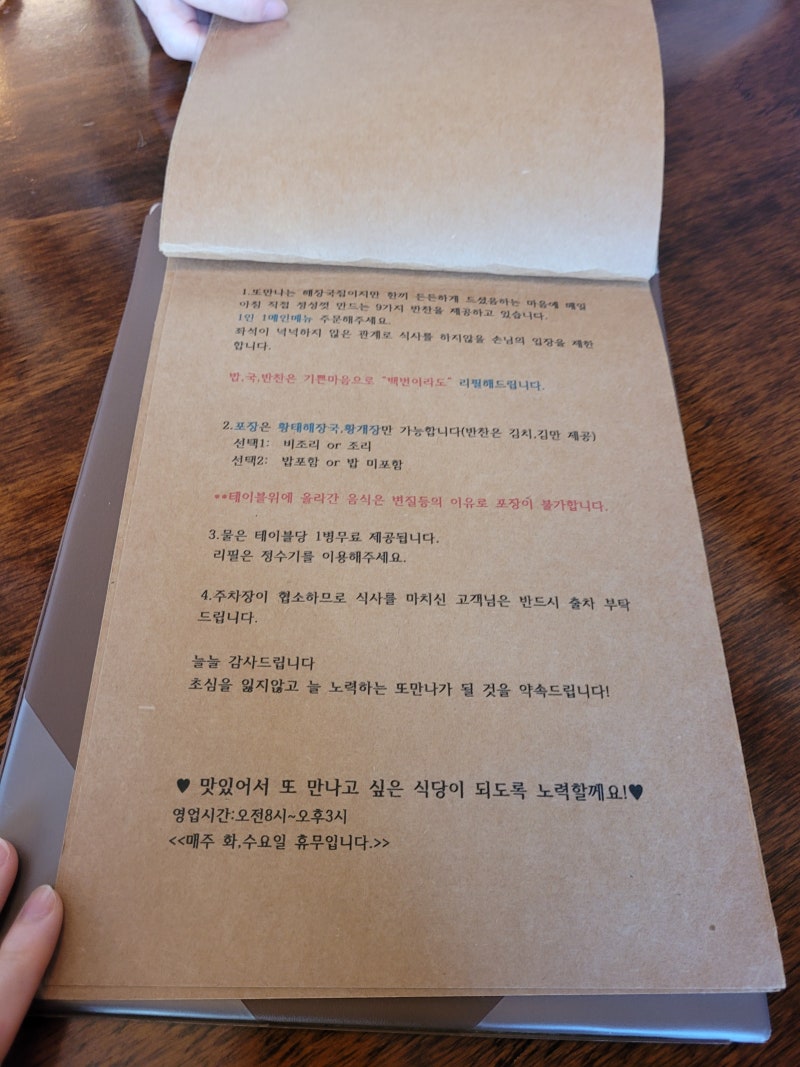 1.또만나는 해장국집이지만 한끼 든든하게 드셨음하는 마음에 매일
아침 직접 정성껏 만드는 9가지 반찬을 제공하고 있습니다.
1인 1메인메뉴 주문해주세요.
좌석이 넉넉하지 않은 관계로 식사를 하지않을 손님의 입장을 제한
합니다.
밥,국,반찬은 기쁜마음으로 "백번이라도" 리필해드립니다.
2.포장은 황태해장국,황개장만 가능합니다(반찬은 김치,김만 제공)
선택1: 비조리 or 조리
선택2: 밥포함 or 밥 미포함
**테이블위에 올라간 음식은 변질등의 이유로 포장이 불가합니다.
3.물은 테이블당 1병무료 제공됩니다.
리필은 정수기를 이용해주세요.
4.주차장이 협소하므로 식사를 마치신 고객님은 반드시 출차 부탁
드립니다.
늘늘 감사드립니다
초심을 잃지않고 늘 노력하는 또만나가 될 것을 약속드립니다!
♥ 맛있어서 또 만나고 싶은 식당이 되도록 노력할께요!♥
영업시간:오전8시~오후3시
<<매주 화,수요일 휴무입니다.>>